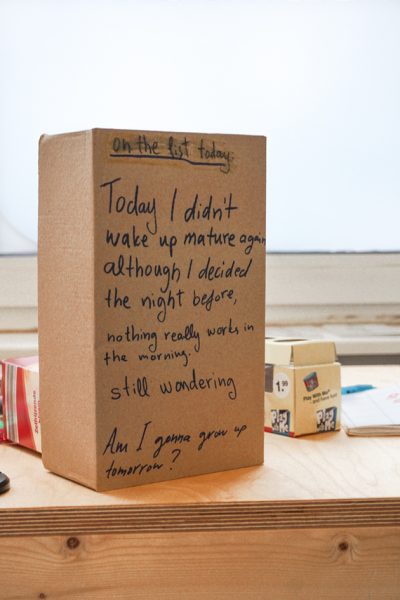 on the list today
Today I didn't
wake up mature again
although I decided
the night before,
nothing really works in
the morning.
still wondering
Am I gonna grow up
tomorrow?
1.95
Play With Me
and have fun!